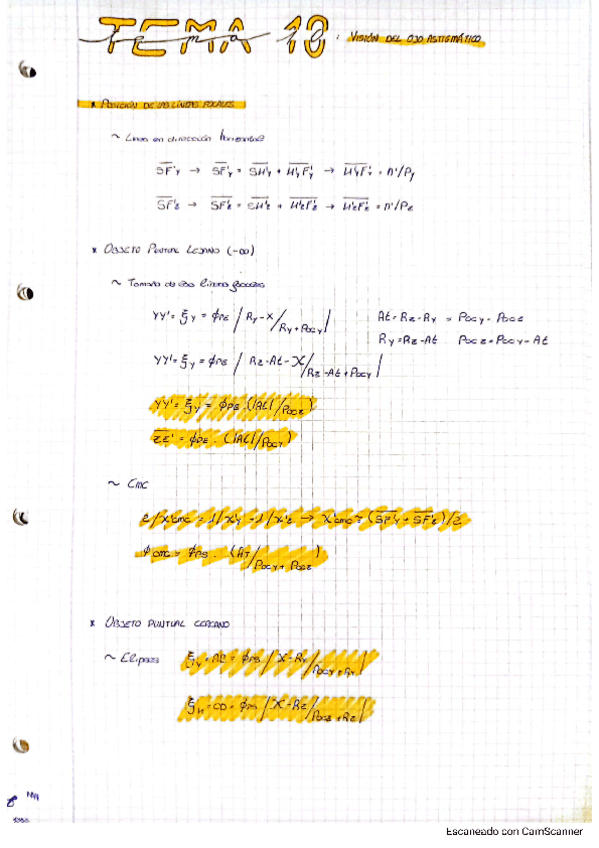 TEMA 10 : VISIÓN DEL OJO ASTIGMÁTICO
* POSICIÓN DE LAS LÍNEAS FOCALES
~ Línea en dirección horizontal
SF'y → SF'y = SH'y + H'yF'y → H'yF'y = n'/Py
SF'z → SF'z = SH'z + H'zF'z → H'zF'z = n'/Pz
* OBJETO PUNTUAL LEJANO (-∞)
~ Tamaño de las líneas focales
YY' = ξy = ϕPE / Ry-X / Ry+Pocy |
At = Rz - Ry = Pocy - Pocz
YY' = ξy = ϕPE / Rz-At-X / Rz-At+Pocy |
Ry = Rz-At Pocz = Pocy - At
YY' = ξy = ϕPE . (|At| / Pocz)
ZZ' = ϕPE . (|At| / Pocy)
~ CMC
2/X'cmc = 1/X'y + 1/X'z → X'cmc = (SF'y + SF'z)/2
ϕcmc = ϕPE . (At / Pocy + Pocz)
* OBJETO PUNTUAL CERCANO
~ Elipses
ξy = AB = ϕPE / X-Ry / Pocy+Ry |
ξH = CD = ϕPE / X-Rz / Pocz+Rz |
Escaneado con CamScanner